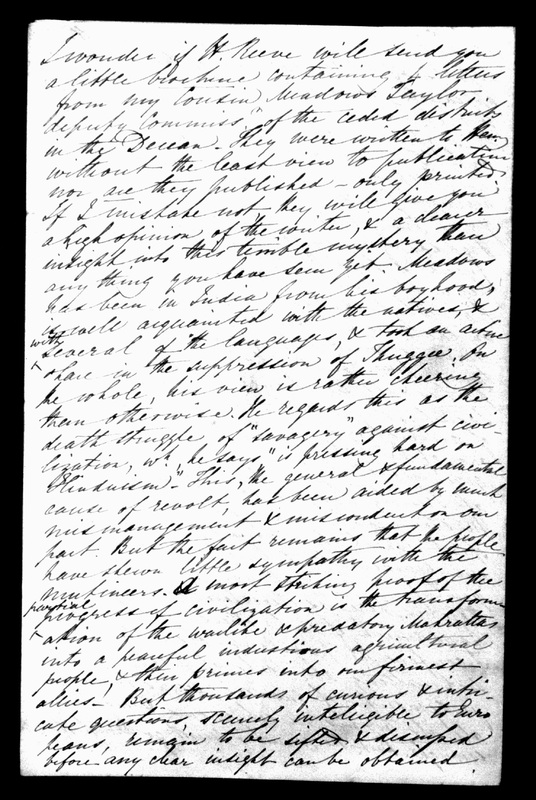 I wonder if H. Reeve will send you
a little brochure containing 4 letters
from my Cousin Meadows Taylor
deputy Commissr of the ceded districts
in the Deccan - They were written to Hen.
without the least view to publication
nor are they published - only printed
If I mistake not they will give you
a high opinion of the writer, & a clearer
insight into this terrible mystery than
any thing you have seen yet. Meadows
has been in India from his boyhood,
is well acquainted with the natives, &
with
several of the languages, & took an active
share in the suppression of Thuggee. On
the whole, his view is rather cheering
than otherwise. He regards this as the
death struggle of "savagery" against civi-
lization, wh. he says "is pressing hard on
Hinduism - " This, the general & fundamental
cause of revolt, has been aided by much
mismanagement & misconduct on our
part. But the fact remains that the people
have shewn little sympathy with the
mutineers. A most striking proof of the
practical
progress of civilization is the transform-
ation of the warlike & predatory Mahrattas
into a peaceful industrious agricultural
people, & their princes into our firmest
allies - But thousands of curious & intri-
cate questions, scarcely intelligible to Euro
peans, remain to be sifted, & discussed
before any clear insight can be obtained.